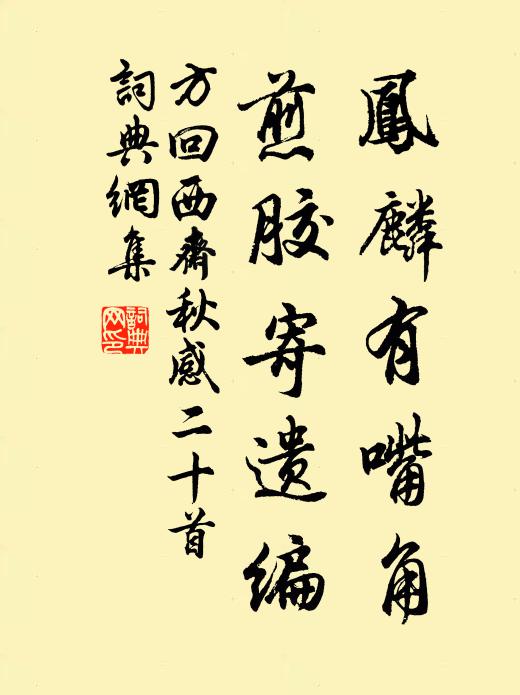 鳳麟有嘴角
煎胶寄遗编
方回西齋秋感二十首
詞典網集
詞典网印